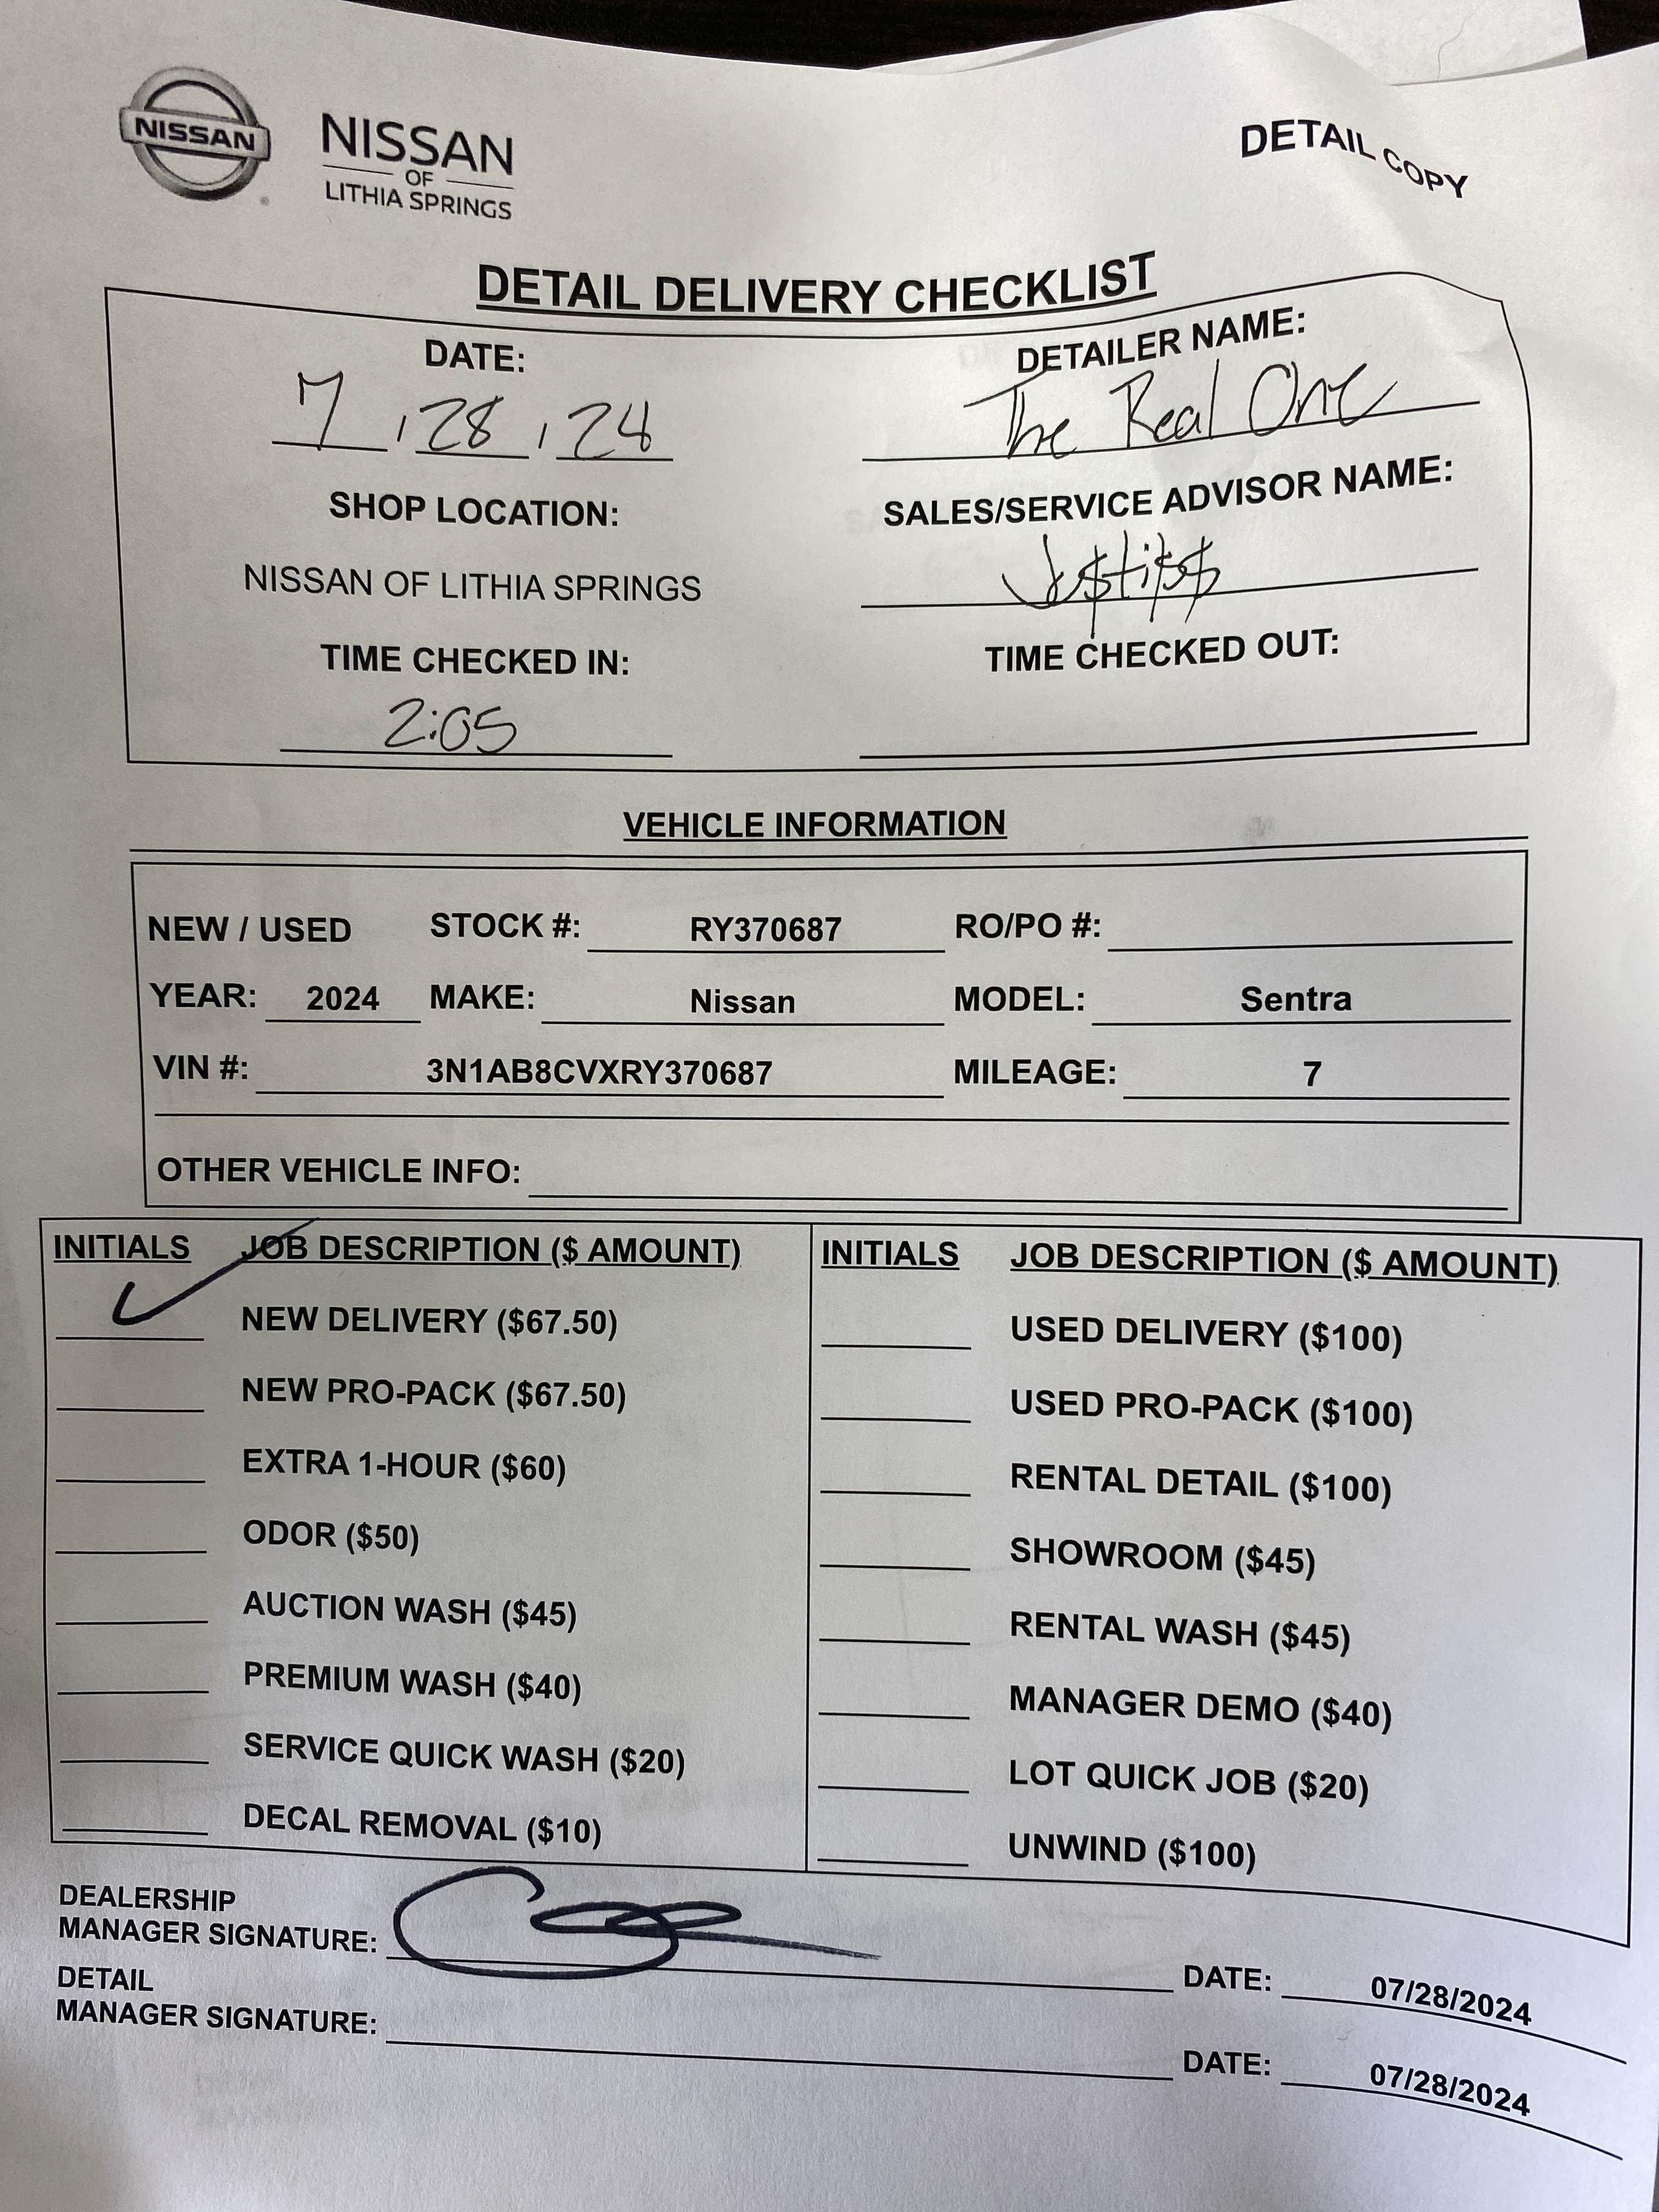 NISSAN
NISSAN
OF
LITHIA SPRINGS
DETAIL COPY
DETAIL DELIVERY CHECKLIST
DATE:
7 / 28 / 24
DETAILER NAME:
The Real One
SHOP LOCATION:
NISSAN OF LITHIA SPRINGS
SALES/SERVICE ADVISOR NAME:
TIME CHECKED IN:
2:05
TIME CHECKED OUT:
VEHICLE INFORMATION
NEW / USED STOCK #: RY370687 RO/PO #:
YEAR: 2024 MAKE: Nissan MODEL: Sentra
VIN #: 3N1AB8CVXRY370687 MILEAGE: 7
OTHER VEHICLE INFO:
INITIALS JOB DESCRIPTION ($ AMOUNT)
NEW DELIVERY ($67.50)
NEW PRO-PACK ($67.50)
EXTRA 1-HOUR ($60)
ODOR ($50)
AUCTION WASH ($45)
PREMIUM WASH ($40)
SERVICE QUICK WASH ($20)
DECAL REMOVAL ($10)
INITIALS JOB DESCRIPTION ($ AMOUNT)
USED DELIVERY ($100)
USED PRO-PACK ($100)
RENTAL DETAIL ($100)
SHOWROOM ($45)
RENTAL WASH ($45)
MANAGER DEMO ($40)
LOT QUICK JOB ($20)
UNWIND ($100)
DEALERSHIP
MANAGER SIGNATURE: DATE: 07/28/2024
DETAIL
MANAGER SIGNATURE: DATE: 07/28/2024